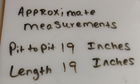 Approximate
measurements
Pit to pit 19 Inches
Length 19 Inches